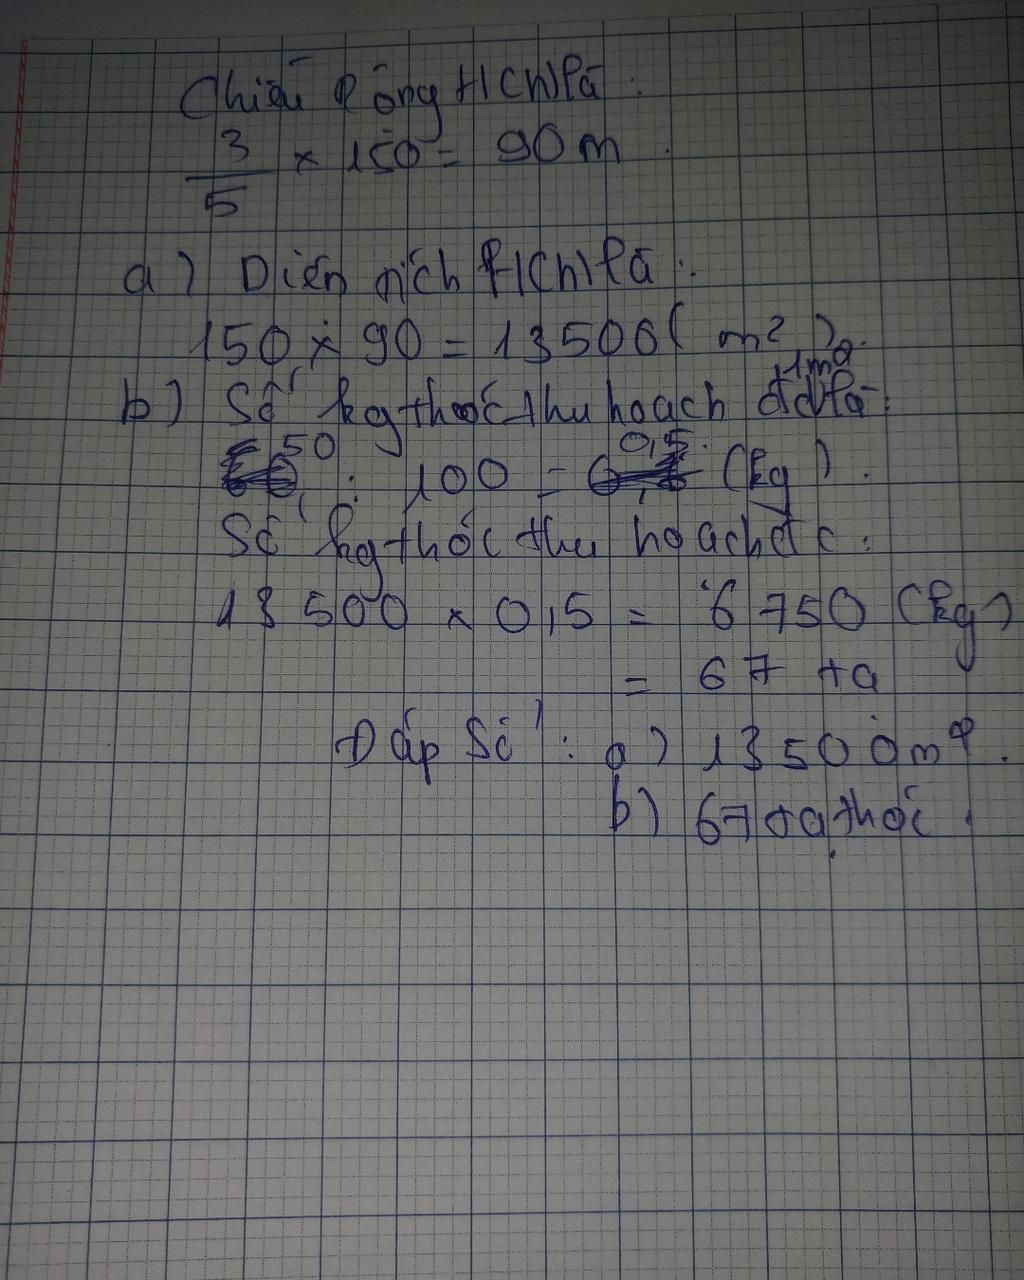 Chiều rộng HCN là:
3/5 × 150 = 90 m.
a) Diện tích HCN là:
150 × 90 = 13500 (m2).
b) Số kg thóc thu hoạch 1m2 là:
50 : 100 = 0,5 (kg).
Số kg thóc thu hoạch đc:
13 500 × 0,5 = 6 750 (kg)
= 67 tạ
Đáp Số: a) 13500m2.
b) 67 tạ thóc.